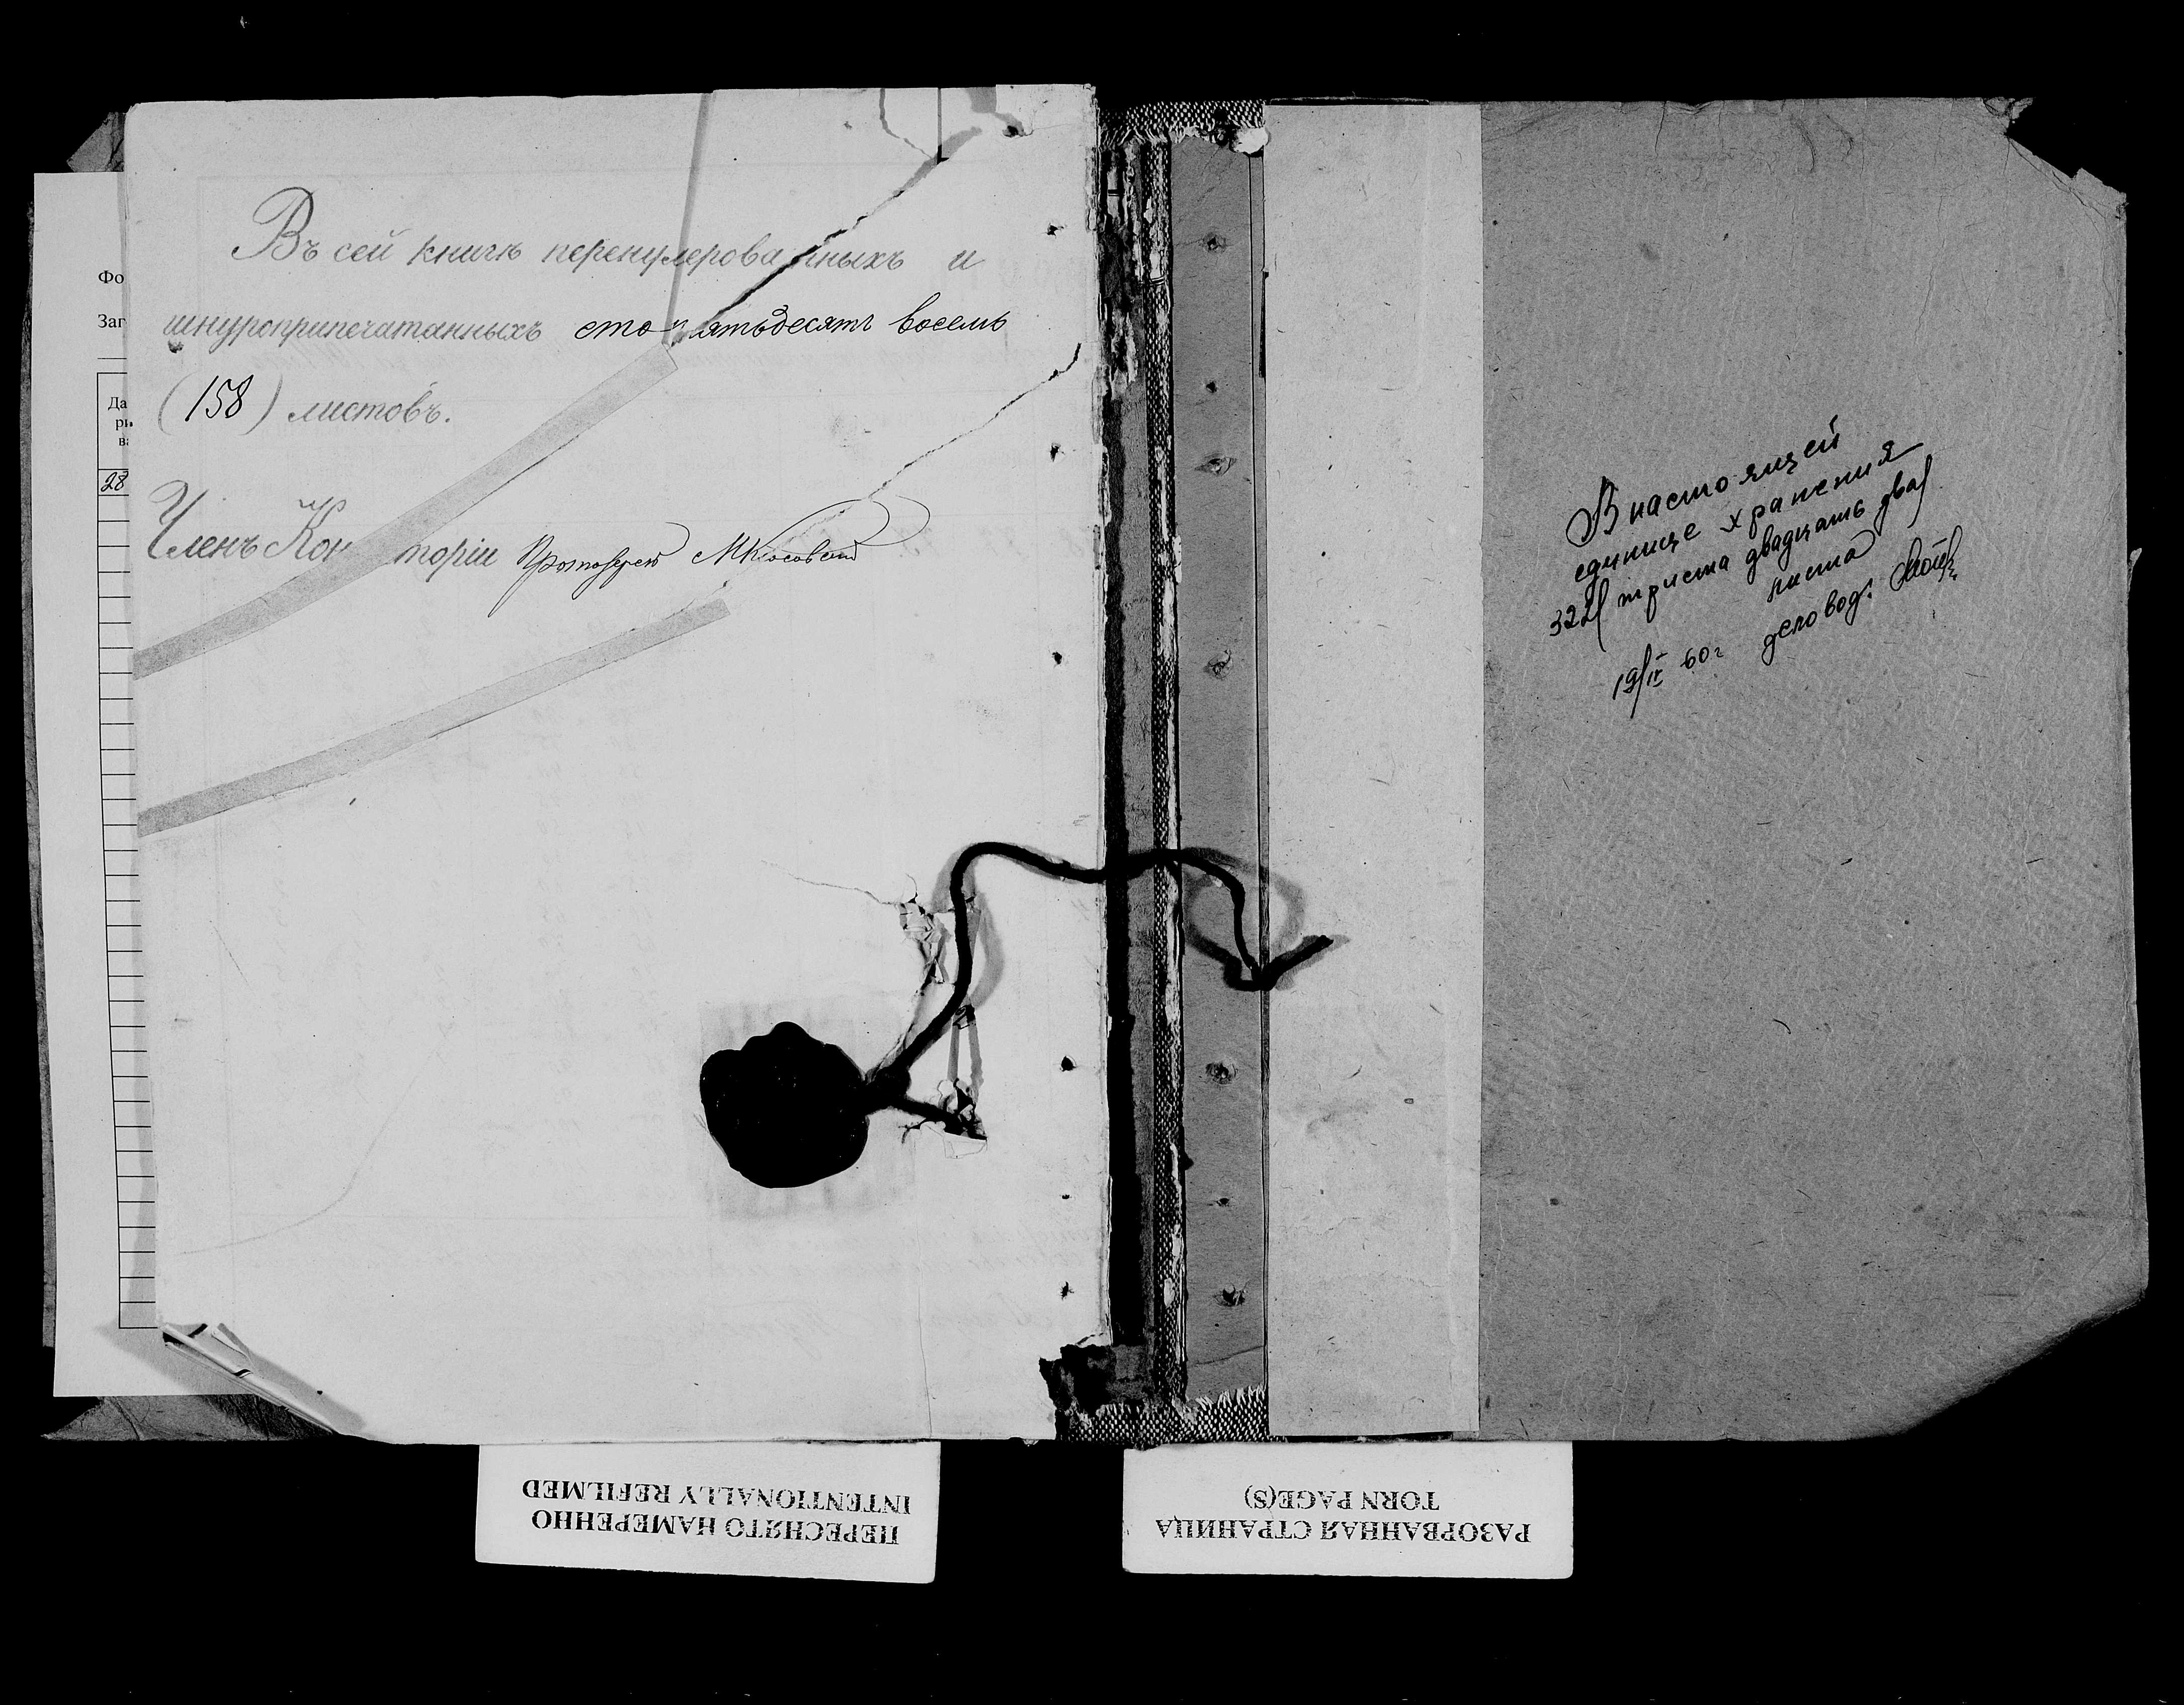 Въ сей книгѣ перенумерованныхъ и
шнуроприпечатанныхъ сто пятьдесятъ восемь
(158) листовъ.
Членъ Конторіи Протоіерей
Фо
Заг
Да
ри
ва
28
В настоящей
единице хранения
322/ триста двадцать два/
листа
19/IV 60 г деловод:
ПЕРЕСНЯТО НАМЕРЕННО
INTENTIONALLY REFILMED
РАЗОРВАННАЯ СТРАНИЦА
TORN PAGE(S)